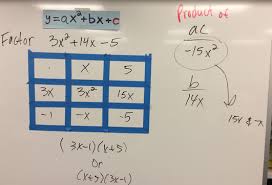 y=ax²+bx+c
Factor 3x²+14x-5
. x 5
3x 3x² 15x
-1 -x -5
(3x-1)(x+5)
Or
(x+5)(3x-1)
Product of
ac
-15x²
b
14x
15x & -x